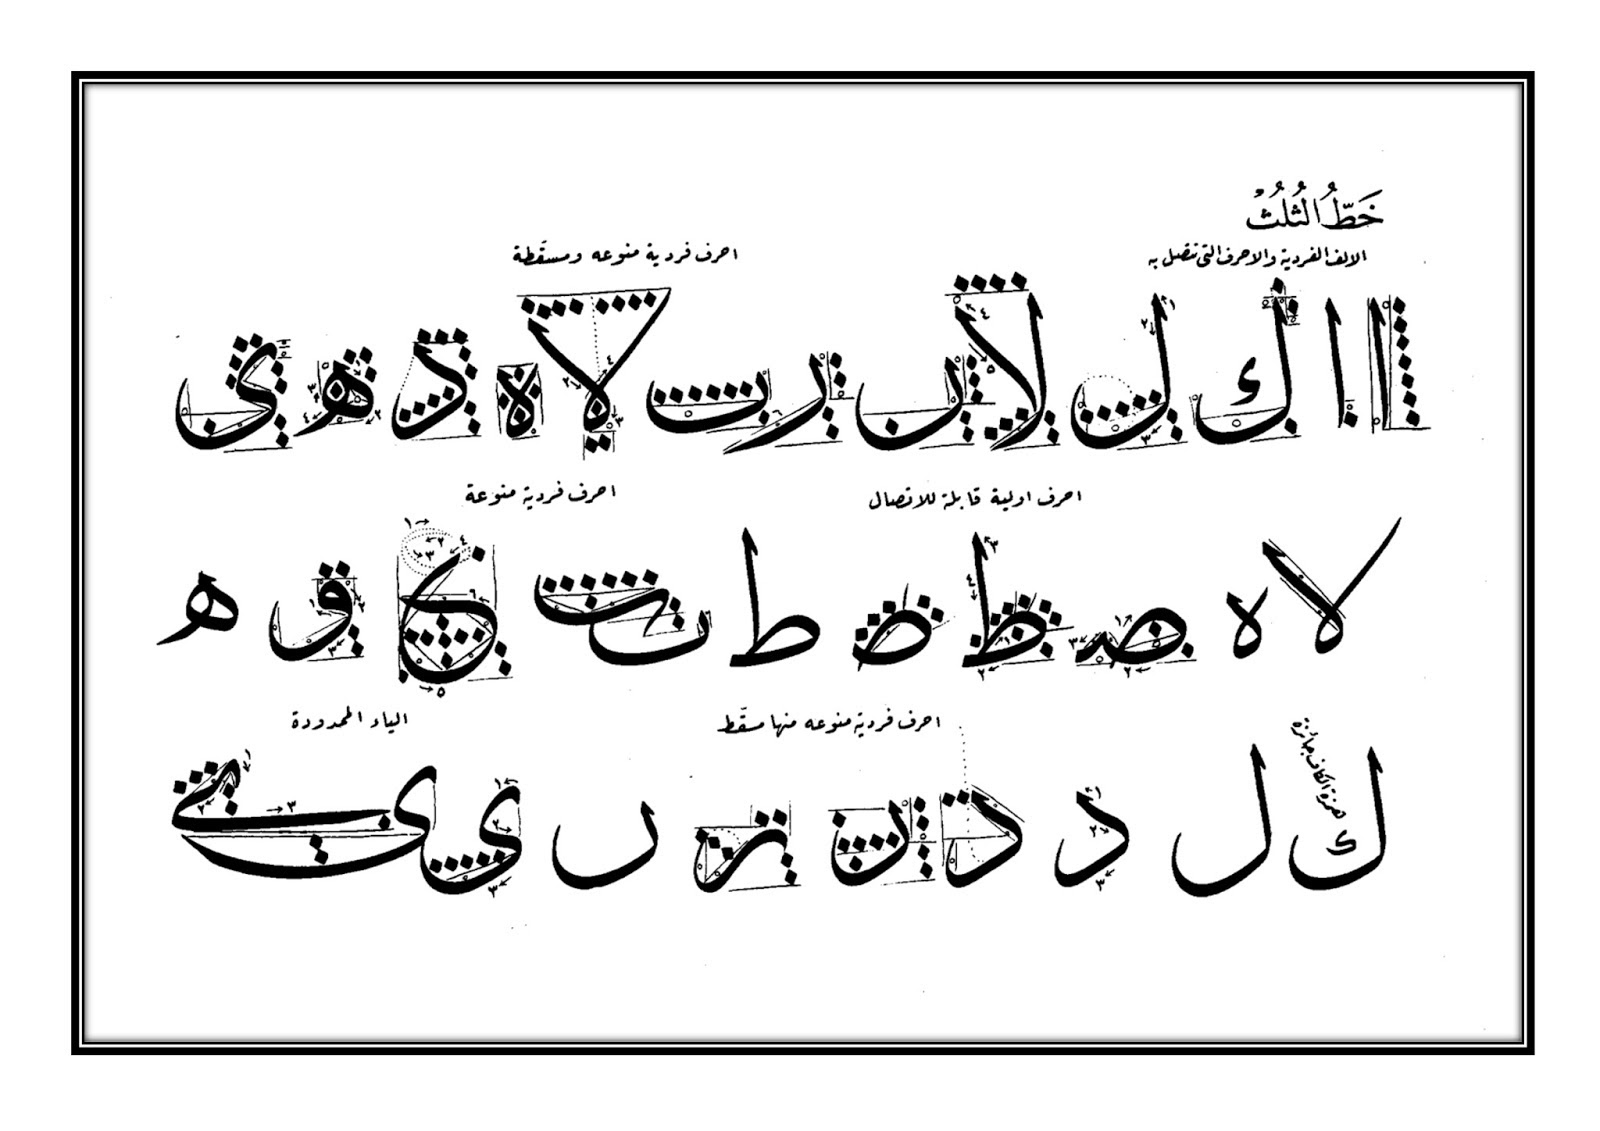 خَطُّ الثُّلُثُ
الالف الفردية والاحرف التي تتصل به
احرف فردية منوعه ومسقّطة
ا ا ك ل لا ن ر ب لا ه د ه ي
احرف اولية قابلة للاتصال
احرف فردية منوعة
لا ه صـ ط ط ب ح و ه
همزة الكاف جائزة
احرف فردية منوعه منها مسقّط
الياء الممدودة
ك ل د د ن ر ر ي ي